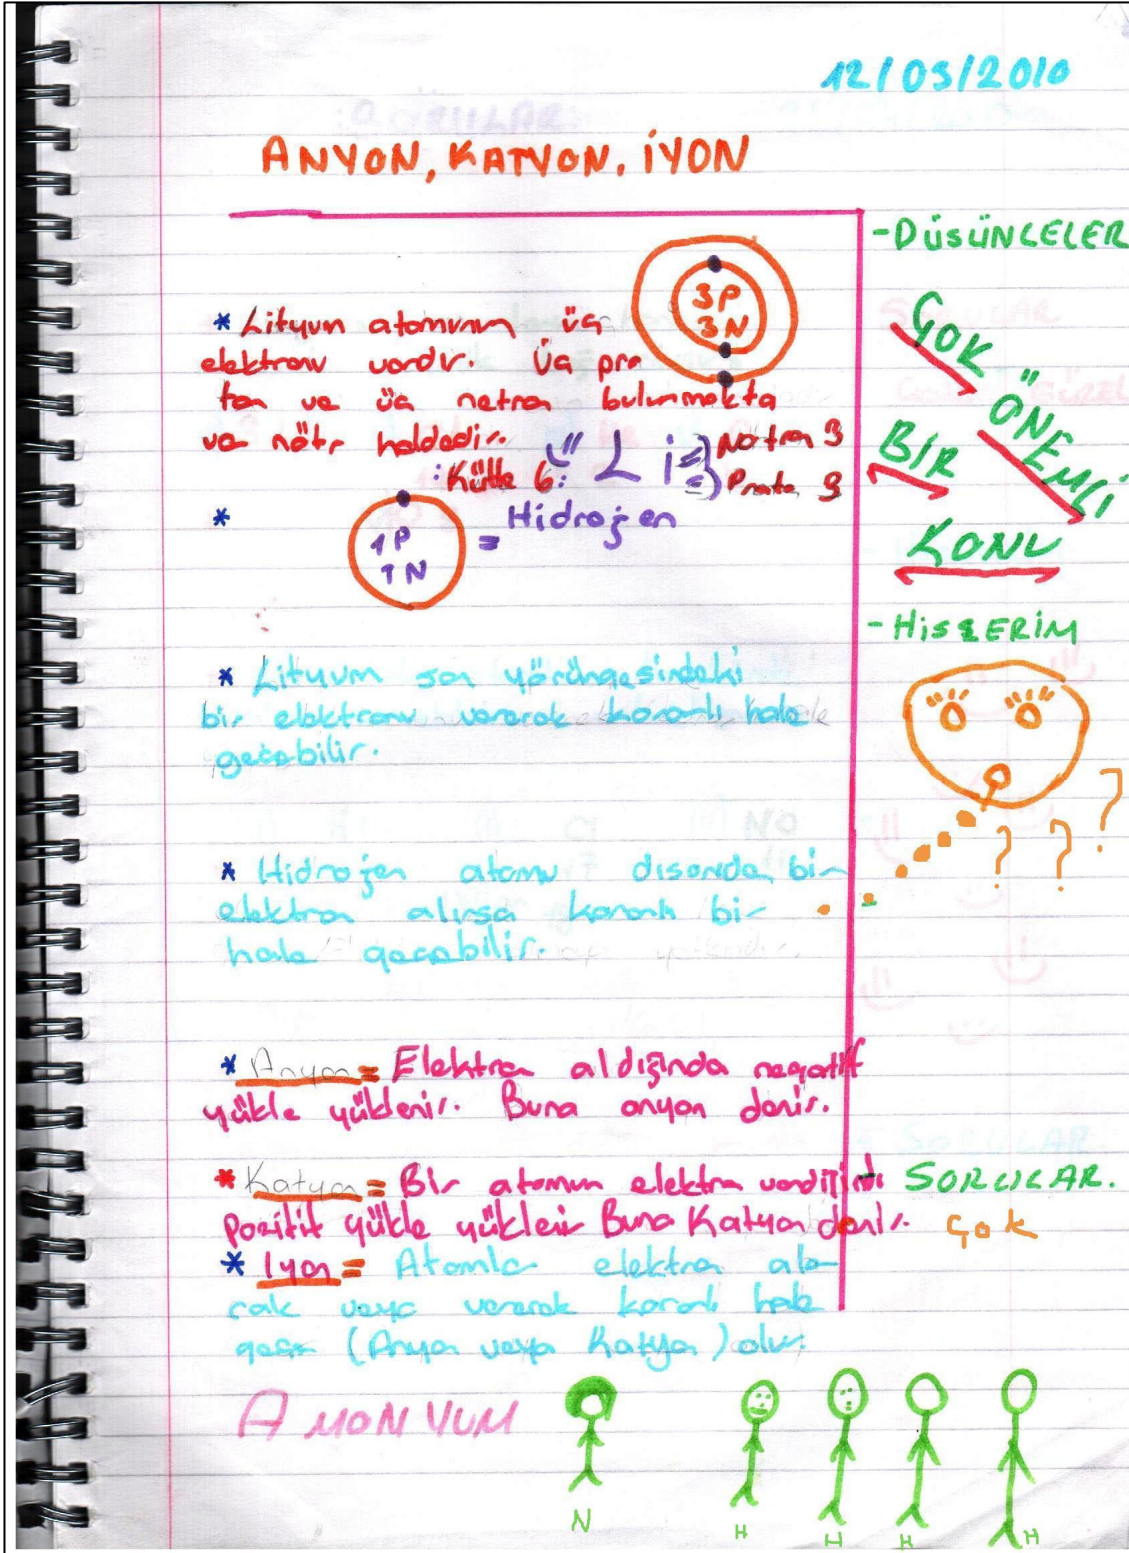 12/03/2010
ANYON, KATYON, İYON
-DÜSÜNCELER
ÇOK
ÖNEMLİ
BİR
KONU
3P
3N
* Lityum atomunun üç
elektronu vardır. Üç pro
ton ve üç netron bulunmakta
ve nötr haldedir.
:Kütle 6: Li = Notron 3
= Proto 3
* 1P
1N
= Hidrojen
-HİSLERİM
* Lityum son yörüngesindeki
bir elektronu vererek kararlı hale
geçebilir.
? ? ?
* Hidrojen atomu dısarıdan bir
elektron alırsa kararlı bir
hale geçebilir.
* Anyon = Elektron aldığında negatif
yükle yüklenir. Buna anyon denir.
* Katyon = Bir atomun elektron verdiğinde
pozitif yükle yüklenir Buna Katyon denir.
SORULAR.
Çok
* İyon = Atomlar elektron ala-
rak veya vererek kararlı hale
geçer (Anyon veya Katyon) olur.
AMONYUM
N H H H H